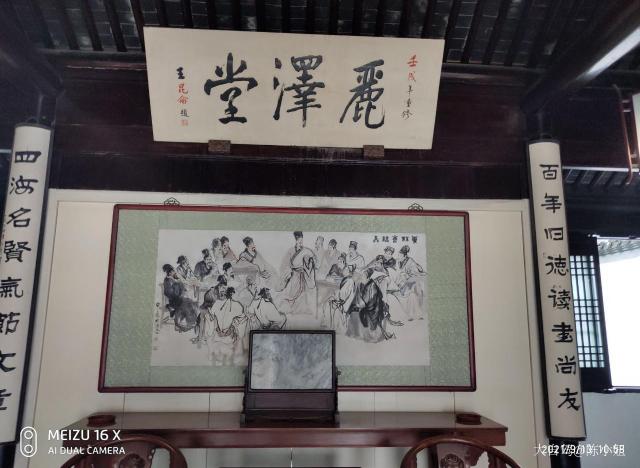 壬戌年重修
麗澤堂
王昆侖題
百年旧德讀書尚友
四海名賢氣節文章
MEIZU 16 X
AI DUAL CAMERA